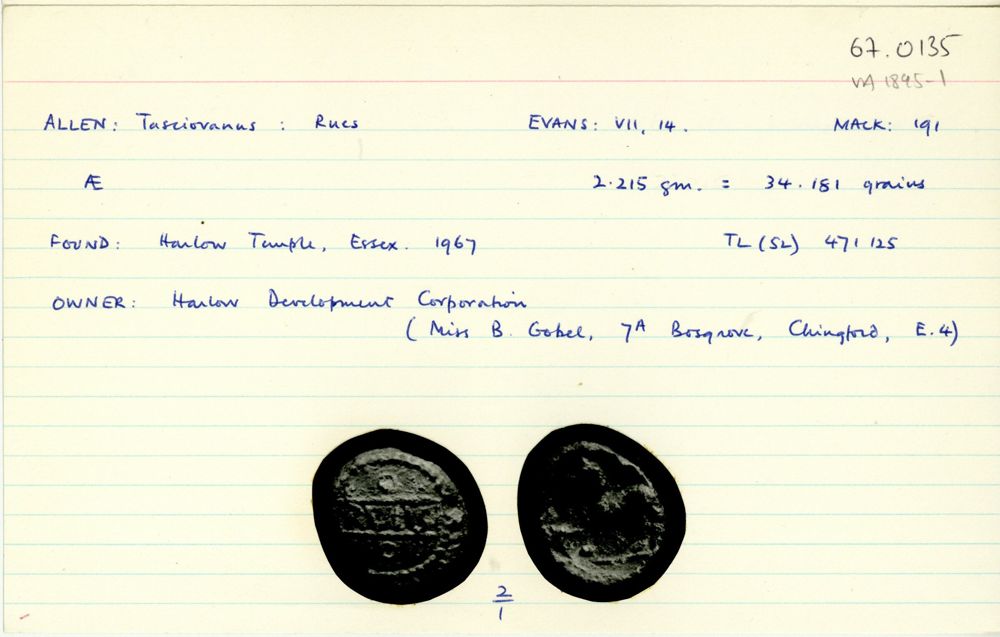 67.0135
VA 1895-1
ALLEN: Tasciovanus : Rues EVANS: VII, 14. MACK: 191
Æ 2.215 gm. = 34.181 grains
FOUND: Harlow Temple, Essex. 1967 TL (52) 471 125
OWNER: Harlow Development Corporation
(Miss B. Gobel, 7A Bosgrove, Chingford, E.4)
2
1